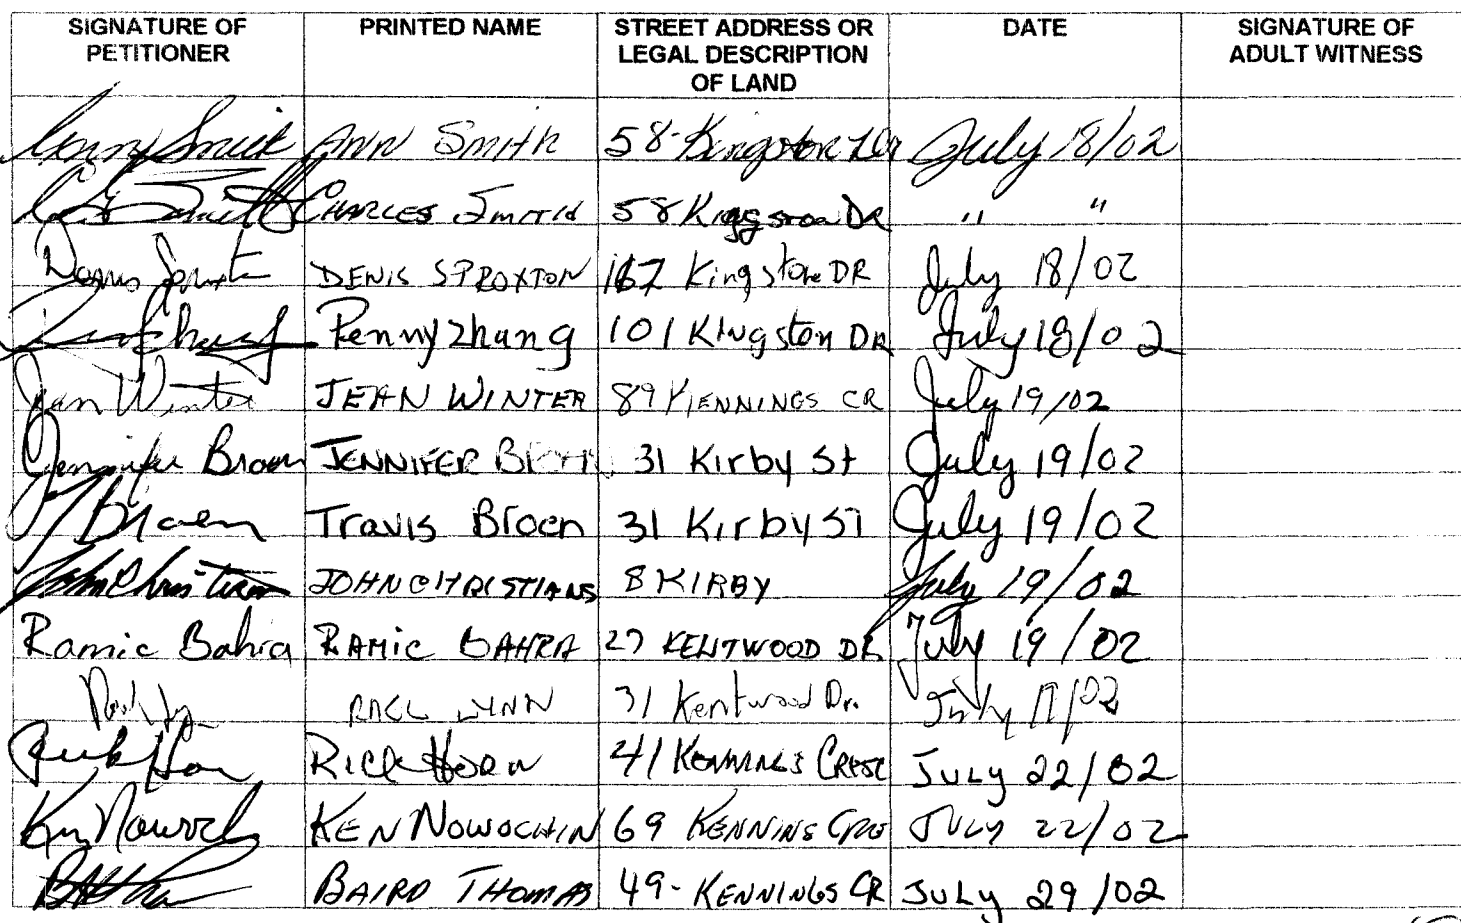 SIGNATURE OF PETITIONER PRINTED NAME STREET ADDRESS OR LEGAL DESCRIPTION OF LAND DATE SIGNATURE OF ADULT WITNESS
Ann Smith ANN SMITH 58-Kingston Dr July 18/02
CHARLES SMITH 58 Kingston DR " "
DENIS SPROXTON 167 Kingston DR July 18/02
Penny Zhang 101 Kingston DR July 18/02
Jean Winter JEAN WINTER 89 KENNINGS CR July 19/02
Jennifer Broen JENNIFER 31 Kirby St July 19/02
T Broen Travis Broen 31 Kirby ST July 19/02
John Christians JOHN CHRISTIANS 8 KIRBY July 19/02
Ramic Bahra RAMIC BAHRA 27 KENTWOOD DR July 19/02
LYNN 31 Kentwood Dr. July /02
Rick Horn RICK HORN 41 KENNINGS CRESC JULY 22/02
Ken KEN NOWOCHIN 69 KENNINS JULY 22/02
BAIRD THOMAS 49- KENNINGS CR JULY 29/02